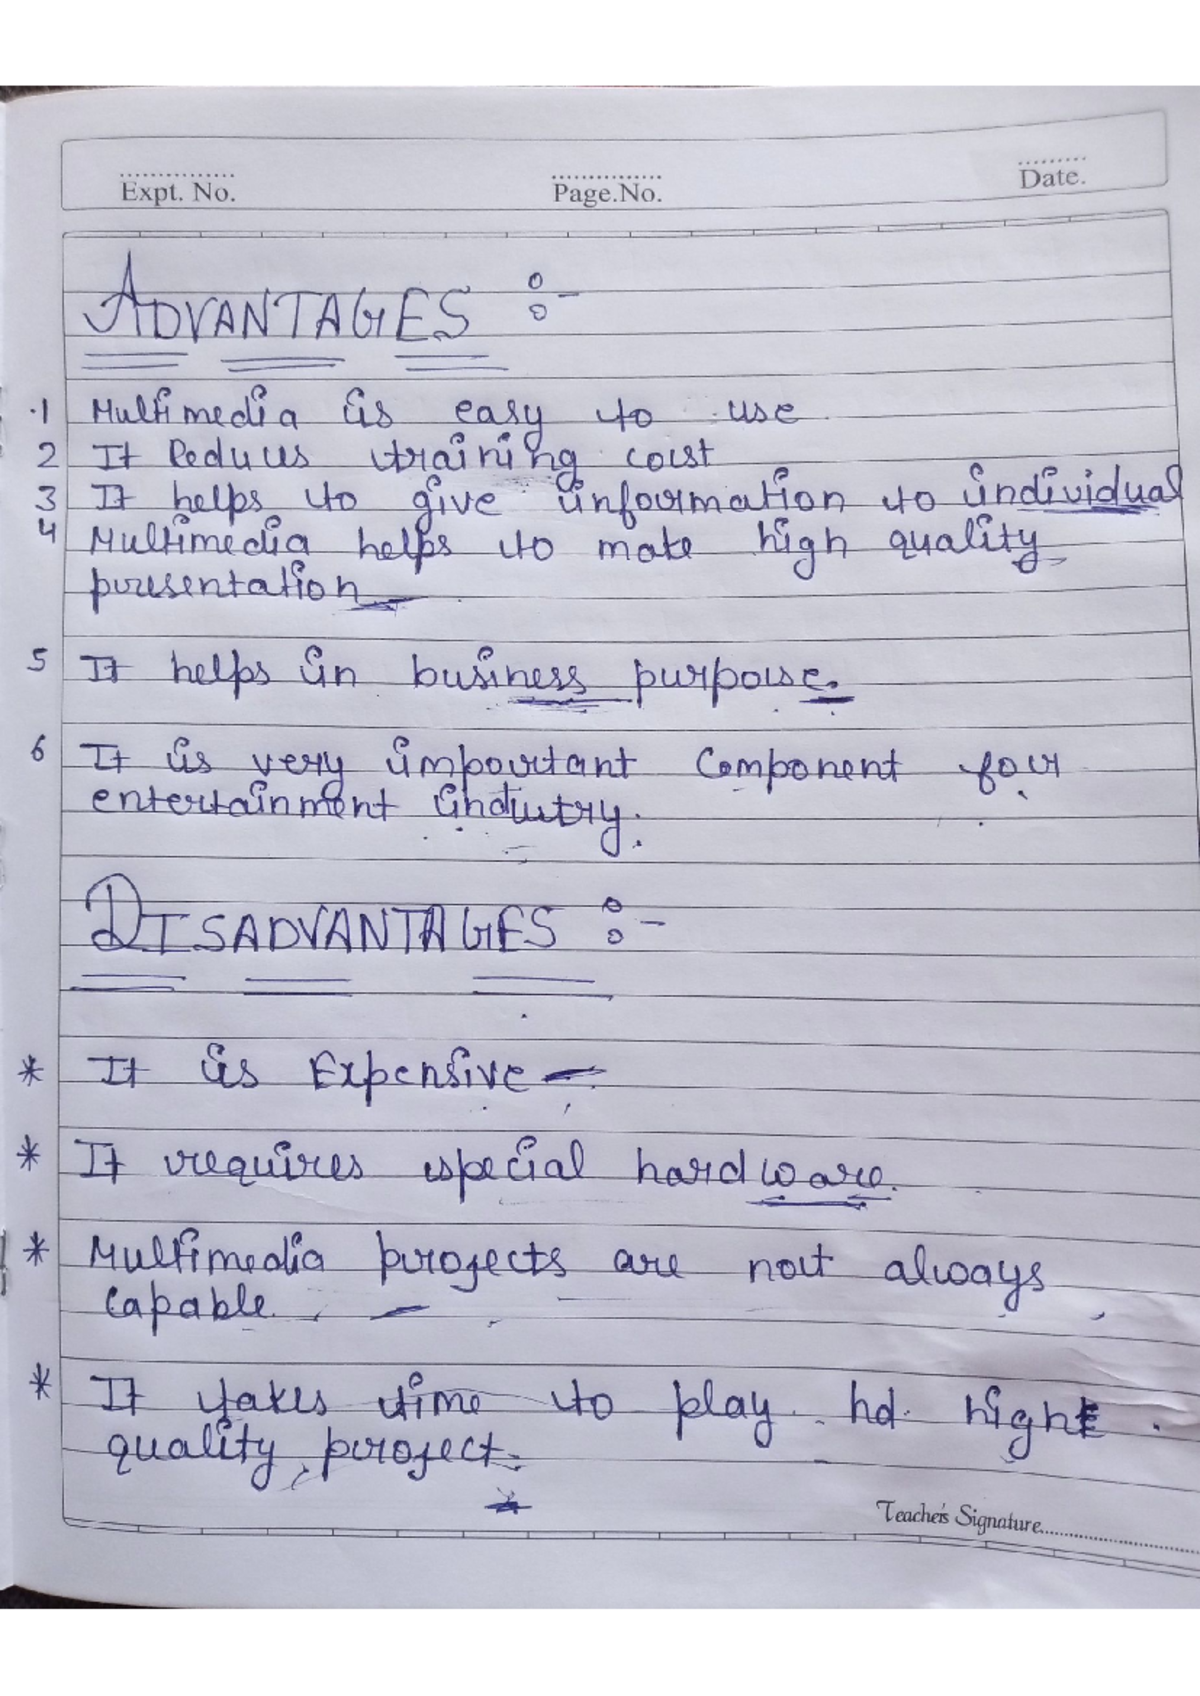 Expt. No.
Page.No.
Date.
ADVANTAGES :-
1 Multimedia is easy to use
2 It Reduces training cost
3 It helps to give information to individual
4 Multimedia helps to make high quality
presentation
5 It helps in business purpose.
6 It is very important component for
entertainment industry.
DISADVANTAGES :-
* It is Expensive
* It requires special hardware.
* Multimedia projects are not always
capable.
* It takes time to play hd hight
quality project.
Teacher's Signature